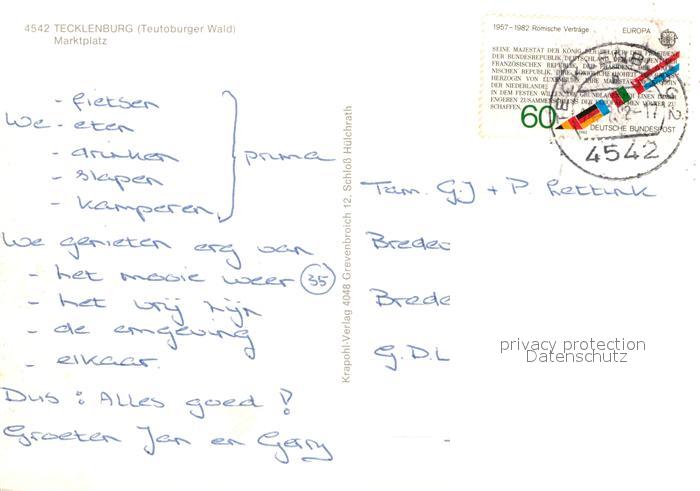 4542 TECKLENBURG (Teutoburger Wald)
Marktplatz
- fietsen
We - eten
- drinken } prima
- slapen
- kamperen
We genieten erg van
- het mooie weer (35)
- het vrij zijn
- de omgeving
- elkaar.
Dus : Alles goed !
Groeten Jan en Gerry
Krapohl-Verlag 4048 Grevenbroich 12, Schloß Hülchrath
1957-1982 Römische Verträge EUROPA
SEINE MAJESTÄT DER KÖNIG DER BELGIER, DER PRÄSIDENT
DER BUNDESREPUBLIK DEUTSCHLAND, DER
FRANZÖSISCHEN REPUBLIK, DER PRÄSIDENT DER
NISCHEN REPUBLIK, IHRE KÖNIGLICHE HOHEIT
HERZOGIN VON LUXEMBURG, IHRE MAJESTÄT
DER NIEDERLANDE
IN DEM FESTEN WILLEN, DIE GRUNDLAGEN EINEN IMMER
ENGEREN ZUSAMMENSCHLUSS DER EUROPÄISCHEN VÖLKER ZU
SCHAFFEN
60
DEUTSCHE BUNDESPOST
4542
Fam. G.J + P. Lettink
Bredev
Brede
G.D.L
privacy protection
Datenschutz